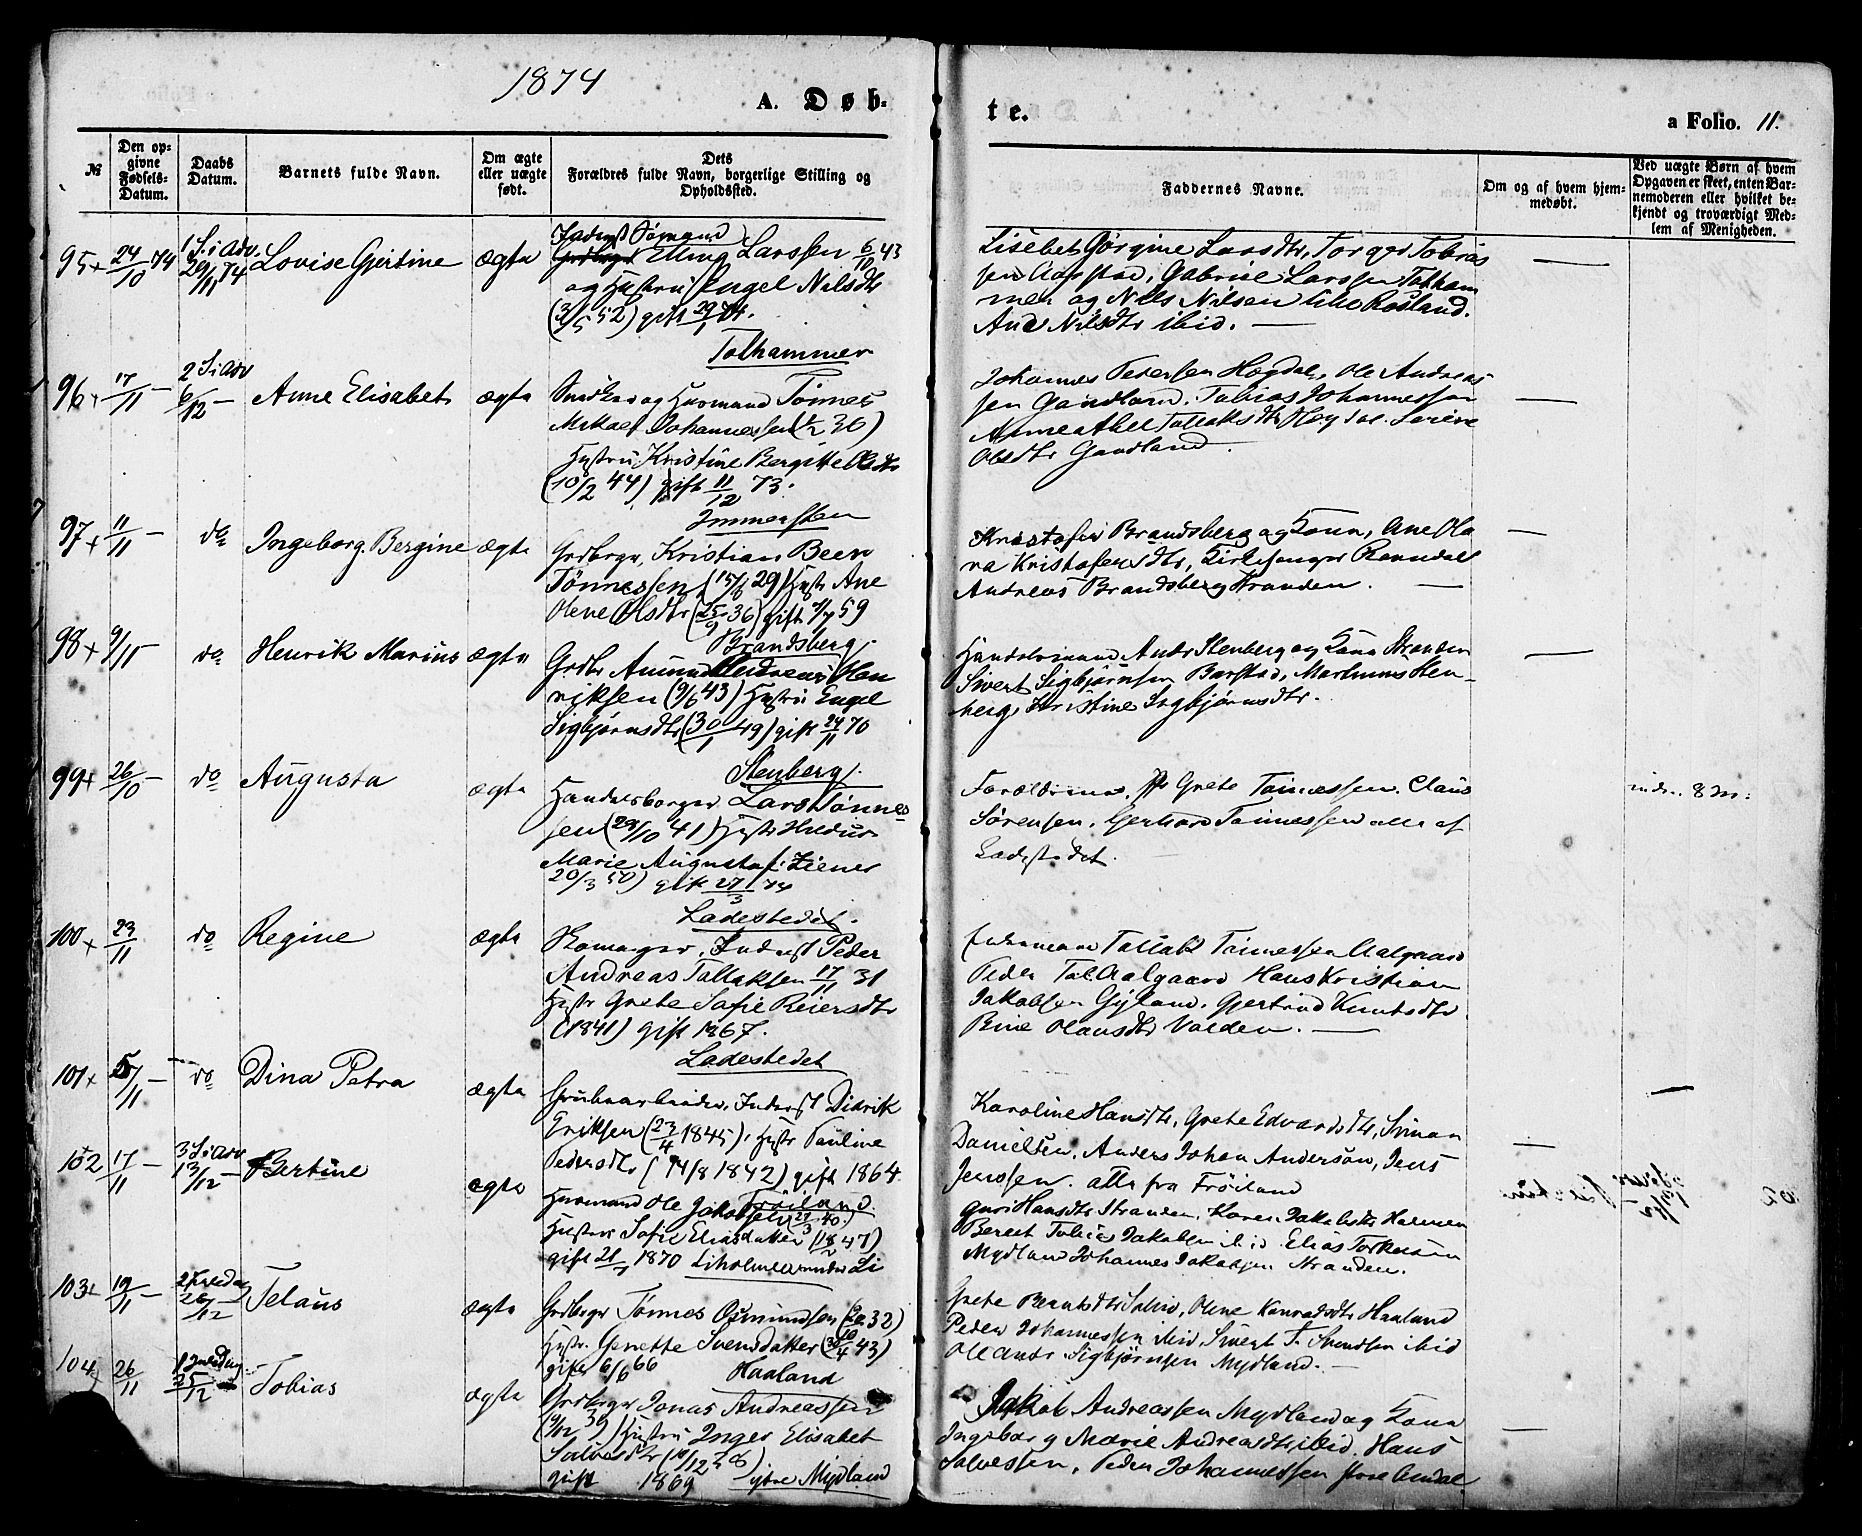 1874
A. Døb-
te.
a Folio. 11.
№
Den op-
givne
Fødsels-
Datum.
Daabs
Datum.
Barnets fulde Navn.
Om ægte
eller uægte
født.
Dets
Forældres fulde Navn, borgerlige Stilling og
Opholdssted.
Faddernes Navne.
Om og af hvem hjem-
medøbt.
Ved uægte Børn af hvem
Opgaven er skeet, enten Bar-
nemoderen eller hvilket be-
kjendt og troværdigt Med-
lem af Menigheden.
95 24/10 74 1 S. i Adv. 29/11 74 Lovise Gjertine ægte
Inderst Sømand
Elling Larssen 6/10 43
og Hustru Engel Nilsdtr
(3/5 52) gift 29/1 74.
Tothammer
Lisebet Gørgine Larsdtr, Torger Tobias
sen Aarstad, Gabriel Larssen Totham
mer og Nils Nilsen Lille Rosland.
Ane Nilsdtr ibid. —
96 17/11 — 2 S i Adv 6/12 — Anne Elisabet ægte
Snedker og Husmand Tønnes
Mikael Johannessen 36)
Hustru Kristine Bergitte Olsdtr
(10/2 44) gift 11/12 73.
Immersten
Johannes Pedersen Høgdal, Ole Andreas
sen Gandland. Tobias Johannessen
Tallaksdtr Serine
Olsdtr Gandland.
97 11/11 — do Ingeborg Bergine ægte
Grdbrgr. Kristian Been
Tønnessen 29) Hustr Ane
Olene Olsdtr (25/9 36) gift 59
Brandsberg
Kristofer Brandsberg og Kona, Ane Ola
va Kristofersdtr, Kirkesanger Ramndal
Andreas Brandsberg Stranden. —
98 9/11 do Henrik Marius ægte
Grdbr Amund Andreas Hen
riksen (9/6 43) Hustru Engel
Sigbjørnsdtr (30/1 49) gift 24/11 70
Stenberg.
Handelsmand Andr Stenberg og Kona Stranden
Sivert Sigbjørnsen Barstad, Martinus Sten-
berg, Kristine Sigbjørnsdtr.
99 26/10 — do Augusta ægte
Handelsborger Lars Tønnes
sen (29/10 41) Hustr Hildur
Marie Augusta f. Ziener
20/3 50) gift 27/3 74
Ladestedet.
Forældrene, Grete Tønnessen. Claus
Sørensen. Gerhard Tønnessen alle af
Ladestedet.
100 23/11 do Regine ægte
Skomager, Inderst Peder
Andreas Tallaksen 17/11 31
Hustr Grete Sofie Reiersdtr
(1841) gift 1867.
Ladestedet
Tallak Tønnessen Aalgaard
Peder Tal Aalgaard Hans Kristian
Jakobsen Gyland. Gjertrud Knutsdtr
Rine Olausdtr Valden. —
101 5/11 — do Dina Petra ægte
Grubearbeider, Inderst Didrik
Eriksen (23/4 1845), Hustr Pauline
Pedersdtr (14/8 1842) gift 1864.
Frøiland
Karoline Hansdtr, Grete Edvardsdtr, Simon
Danielsen, Anders Johan Anderson, Jens
Jenssen. alle fra Frøiland
102 17/11 — 3 S i Adv 13/12 — Bertine ægte
Husmand Ole Jakobsen (29/3 40.)
Hustru Sofie Eliasdatter (18/2 47)
gift 1870 Liholmen under Li
Guri Hansdtr Stranden, Karen Jakobsdtr
Berent Tobias Jakobsen ibid Elias Torkelsen
Mydland Johannes Jakobsen Stranden.
103 19/11 — 2 Juledag 26/12 Telaus ægte
Grdbrgr Tønnes Osmundsen 32)
Hustr. Genette Svensdatter 43)
gift 6/6 66 Haaland
Grete Berntsdtr Olene Konradsdtr Haaland
Peder Johannessen ibid, Sivert T. ibid
Ole Andr. Sigbjørnsen Mydland. —
104 26/11 1 Juledag 25/12 Tobias ægte
Grdbrgr Jonas Andreassen
39) Hustru Inger Elisabet
Salvesdtr
gift 1869 ytre Mydland
Jakob Andreassen Mydland og Kona
Ingebor g Marie Andreasdtr ibid. Hans
Salvessen, Peder Johannessen